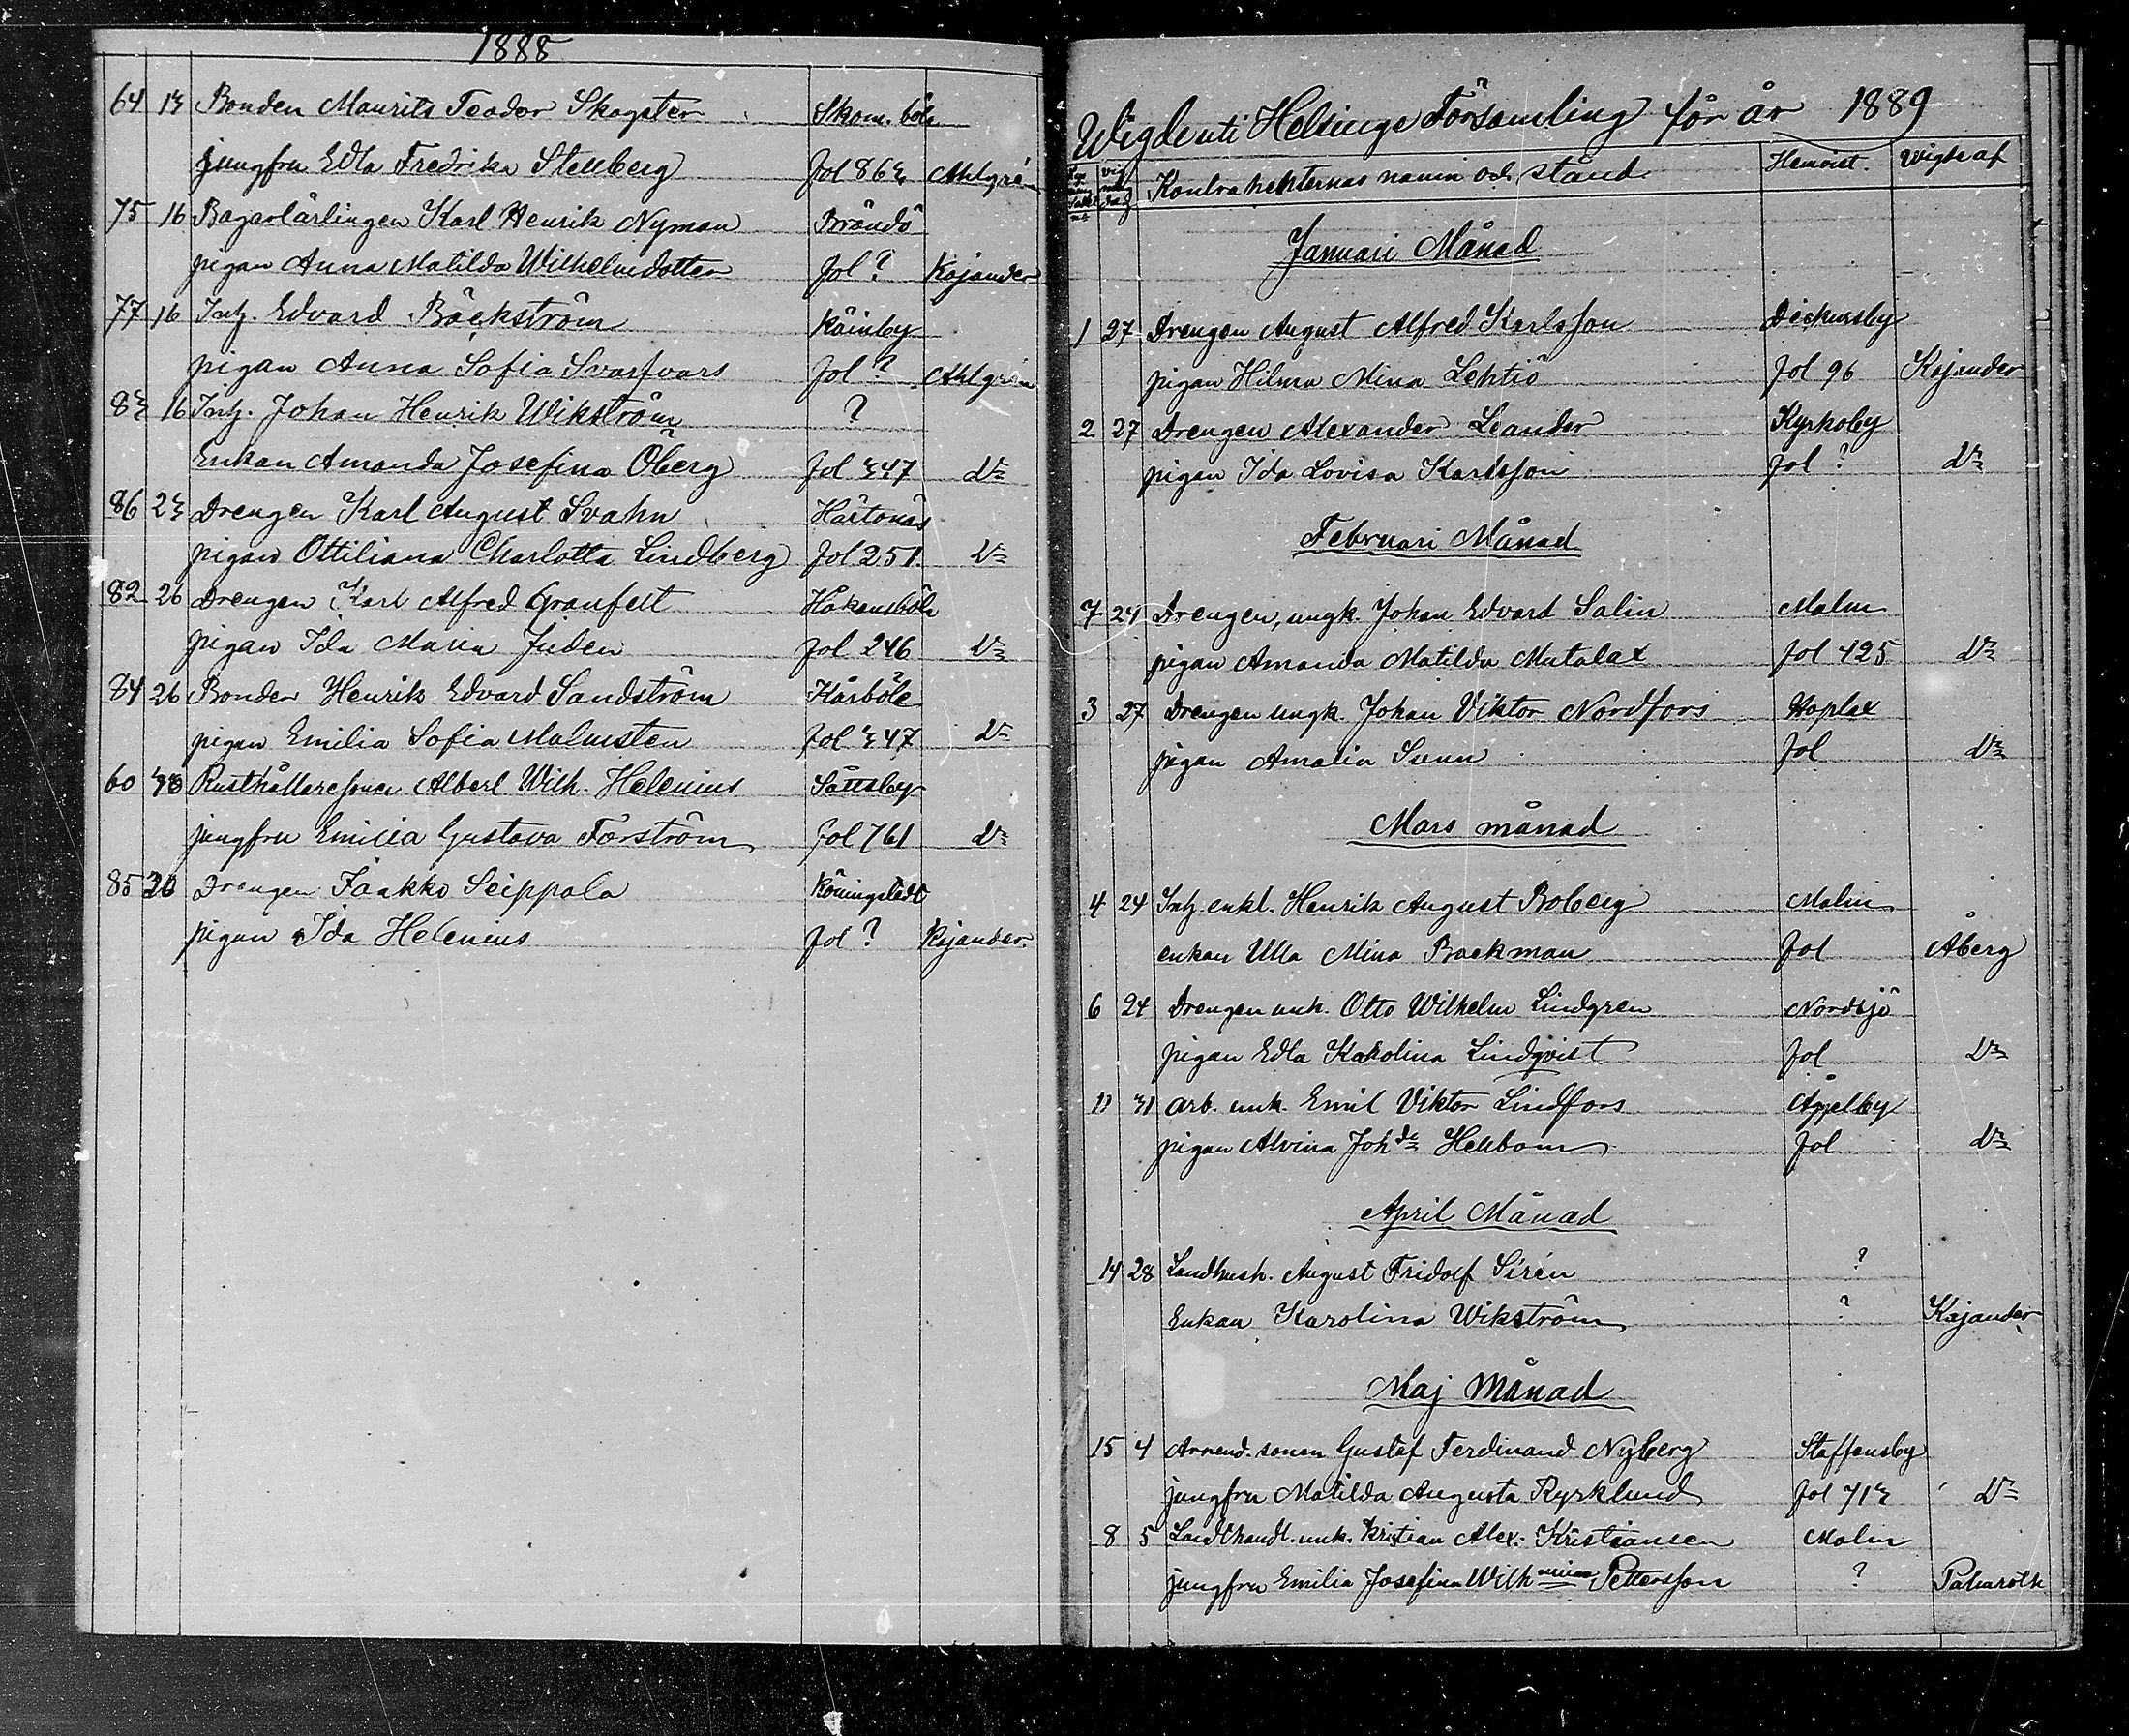 1888
64 13 Bonden Maurits Teodor Skogster Skom. böle
jungfru Edla Fredrika Stellberg fol 863 Ahlgrén
75 16 Bagarlärlingen Karl Henrik Nyman Brändö
pigan Anna Matilda Wilhelmsdotter fol ? Kajander
77 16 Inh. Edvard Bäckström
pigan Anna Sofia Svarfvars fol ? Ahlgrén
83 16 Inh. Johan Henrik Wikström ?
Enkan Amanda Josefina Öberg fol 347 Do
86 23 Drengen Karl August Svahn Hertonäs
pigan Ottiliana Charlotta Lindberg fol 251. Do
82 26 Drengen Karl Alfred Granfelt Håkansböle
pigan Ida Maria Juden fol 246 Do
84 26 Bonden Henrik Edvard Sandström Kårböle
pigan Emilia Sofia Malmsten fol 347 Do
60 Rusthållaresonen Albert Wilh. Helenius Sottsby
jungfru Emilia Gustava Forström fol 761 Do
85 Drengen Jaakko Seippola Köningstedt
pigan Ida Helenius fol ? Kajander
Wigde uti Helsinge Församling för år 1889
Kontrahenternas namn och stånd Hemvist. Wigde af
Januari Månad
1 27 Drengen August Alfred Karlsson Dickursby
pigan Hilma Mina Lehtiö fol 96 Kajander
2 27 Drengen Alexander Leander Kyrkoby
pigan Ida Lovisa Karlsson fol ? Do
Februari Månad
7 24 Drengen, ungk. Johan Edvard Salin Malm
pigan Amanda Matilda Mutalax fol 425 Do
3 27 Drengen ungk. Johan Viktor Nordfors Hoplax
pigan Amalia Sunn fol Do
Mars månad
4 24 Inh. enkl. Henrik August Broberg Malm
enkan Ulla Mina Backman fol Åberg
6 24 Drengen unk. Otto Wilhelm Lindgren Nordsjö
pigan Edla Karolina Lindqvist fol Do
11 31 arb. unk. Emil Viktor Lindfors Åggelby
pigan Alvina Johda Hellbom fol Do
April Månad
14 28 August Fridolf Sirén ?
Enkan Karolina Wikström ? Kajander
Maj Månad
15 4 Arrend. sonen Gustaf Ferdinand Nyberg Staffansby
jungfru Matilda Augusta Kyrklund fol 713 Do
8 5 Landthandl. unk. Kristian Alex. Kristiansen Malm
jungfru Emilia Josefina Wilhmina Pettersson ?